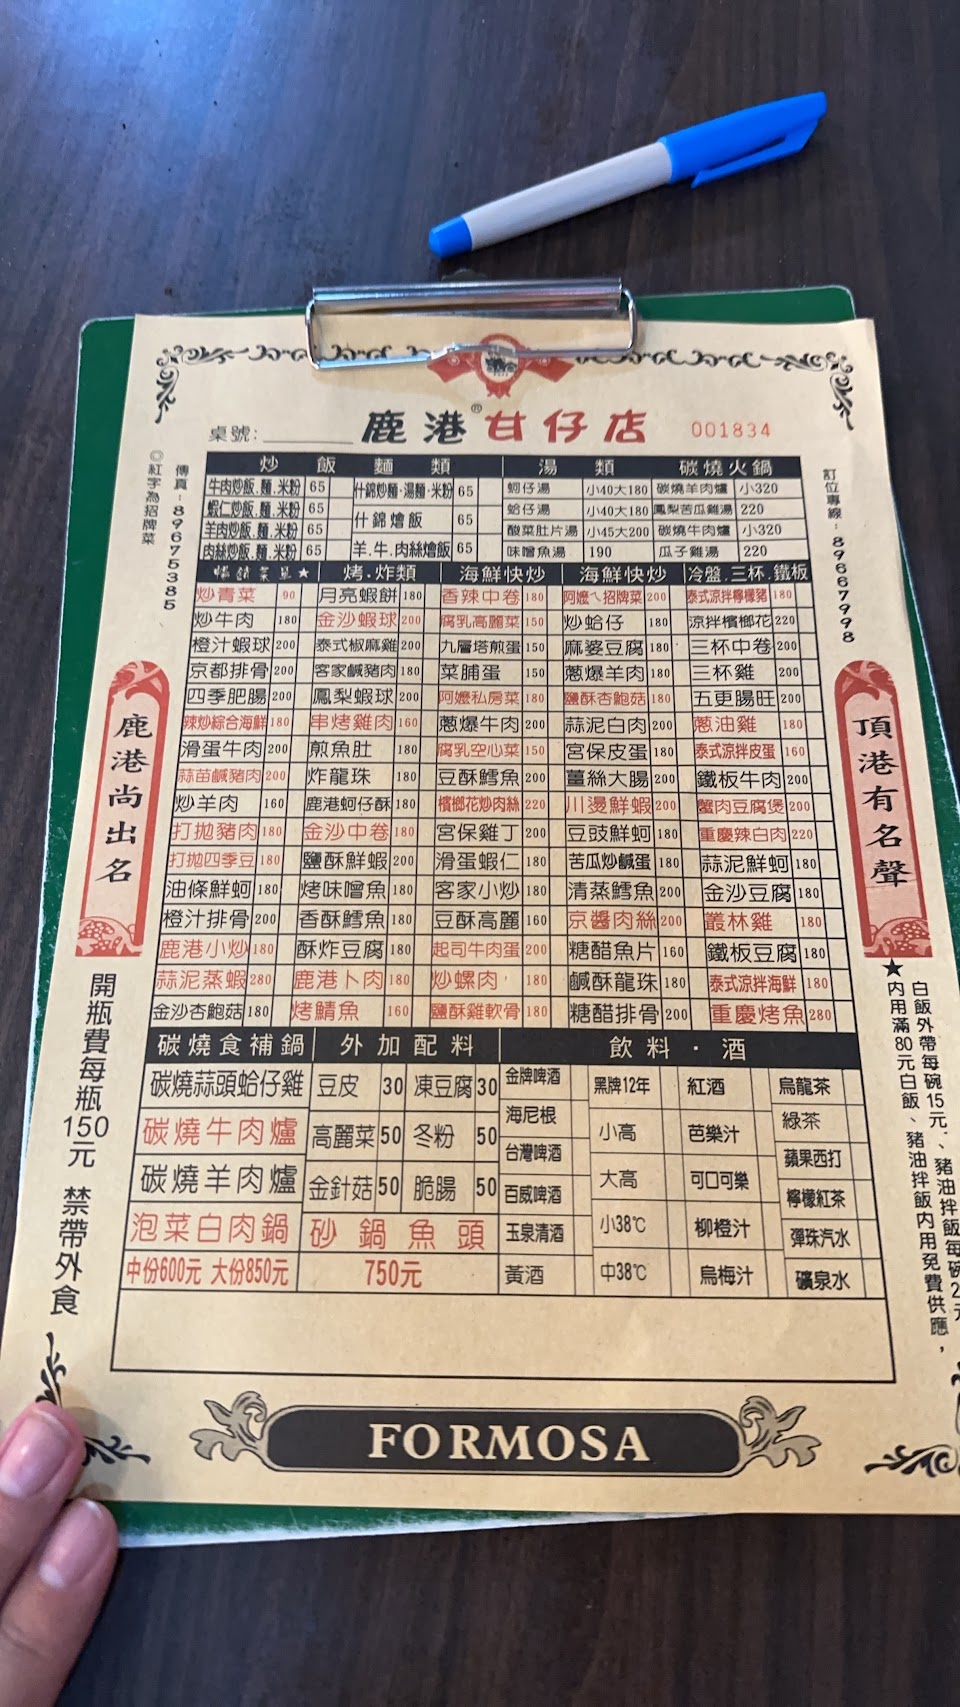 桌號: 鹿港®甘仔店 001834
◎紅字為招牌菜
傳真:89675385
訂位專線:89667998
鹿港尚出名
頂港有名聲
炒飯麵類 湯類 碳燒火鍋
牛肉炒飯.麵.米粉 65 什錦炒麵·湯麵·米粉 65 蚵仔湯 小40大180 碳燒羊肉爐 小320
蝦仁炒飯.麵.米粉 65 什錦燴飯 65 蛤仔湯 小40大180 鳳梨苦瓜雞湯 220
羊肉炒飯.麵.米粉 65 酸菜肚片湯 小45大200 碳燒牛肉爐 小320
肉絲炒飯.麵.米粉 65 羊.牛.肉絲燴飯 65 味噌魚湯 190 瓜子雞湯 220
暢銷菜單★ 烤.炸類 海鮮快炒 海鮮快炒 冷盤.三杯.鐵板
炒青菜 90 月亮蝦餅 180 香辣中卷 180 阿嬤ㄟ招牌菜 200 泰式涼拌檸檬豬 180
炒牛肉 180 金沙蝦球 200 腐乳高麗菜 150 炒蛤仔 180 涼拌檳榔花 220
橙汁蝦球 200 泰式椒麻雞 200 九層塔煎蛋 150 麻婆豆腐 180 三杯中卷 200
京都排骨 200 客家鹹豬肉 180 菜脯蛋 150 蔥爆羊肉 180 三杯雞 200
四季肥腸 200 鳳梨蝦球 200 阿嬤私房菜 180 鹽酥杏鮑菇 180 五更腸旺 200
辣炒綜合海鮮 180 串烤雞肉 160 蔥爆牛肉 200 蒜泥白肉 200 蔥油雞 180
滑蛋牛肉 200 煎魚肚 180 腐乳空心菜 150 宮保皮蛋 180 泰式涼拌皮蛋 160
蒜苗鹹豬肉 200 炸龍珠 180 豆酥鱈魚 200 薑絲大腸 200 鐵板牛肉 200
炒羊肉 160 鹿港蚵仔酥 180 檳榔花炒肉絲 220 川燙鮮蝦 200 蟹肉豆腐煲 200
打拋豬肉 180 金沙中卷 180 宮保雞丁 200 豆豉鮮蚵 180 重慶辣白肉 220
打拋四季豆 180 鹽酥鮮蝦 200 滑蛋蝦仁 180 苦瓜炒鹹蛋 180 蒜泥鮮蚵 180
油條鮮蚵 180 烤味噌魚 180 客家小炒 180 清蒸鱈魚 200 金沙豆腐 180
橙汁排骨 200 香酥鱈魚 180 豆酥高麗 160 京醬肉絲 200 叢林雞 180
鹿港小炒 180 酥炸豆腐 180 起司牛肉蛋 200 糖醋魚片 160 鐵板豆腐 180
蒜泥蒸蝦 280 鹿港卜肉 180 炒螺肉 180 鹹酥龍珠 180 泰式涼拌海鮮 180
金沙杏鮑菇 180 烤鯖魚 160 鹽酥雞軟骨 180 糖醋排骨 200 重慶烤魚 280
碳燒食補鍋 外加配料 飲料·酒
碳燒蒜頭蛤仔雞 豆皮 30 凍豆腐 30 金牌啤酒 黑牌12年 紅酒 烏龍茶
碳燒牛肉爐 高麗菜 50 冬粉 50 海尼根 小高 芭樂汁 綠茶
碳燒羊肉爐 金針菇 50 脆腸 50 台灣啤酒 大高 可口可樂 蘋果西打
泡菜白肉鍋 砂鍋魚頭 百威啤酒 小38℃ 柳橙汁 檸檬紅茶
中份600元 大份850元 750元 玉泉清酒 中38℃ 烏梅汁 彈珠汽水
黃酒 礦泉水
開瓶費每瓶150元 禁帶外食
★白飯外帶每碗15元、豬油拌飯每碗2
內用滿80元白飯、豬油拌飯內用免費供應,
FORMOSA